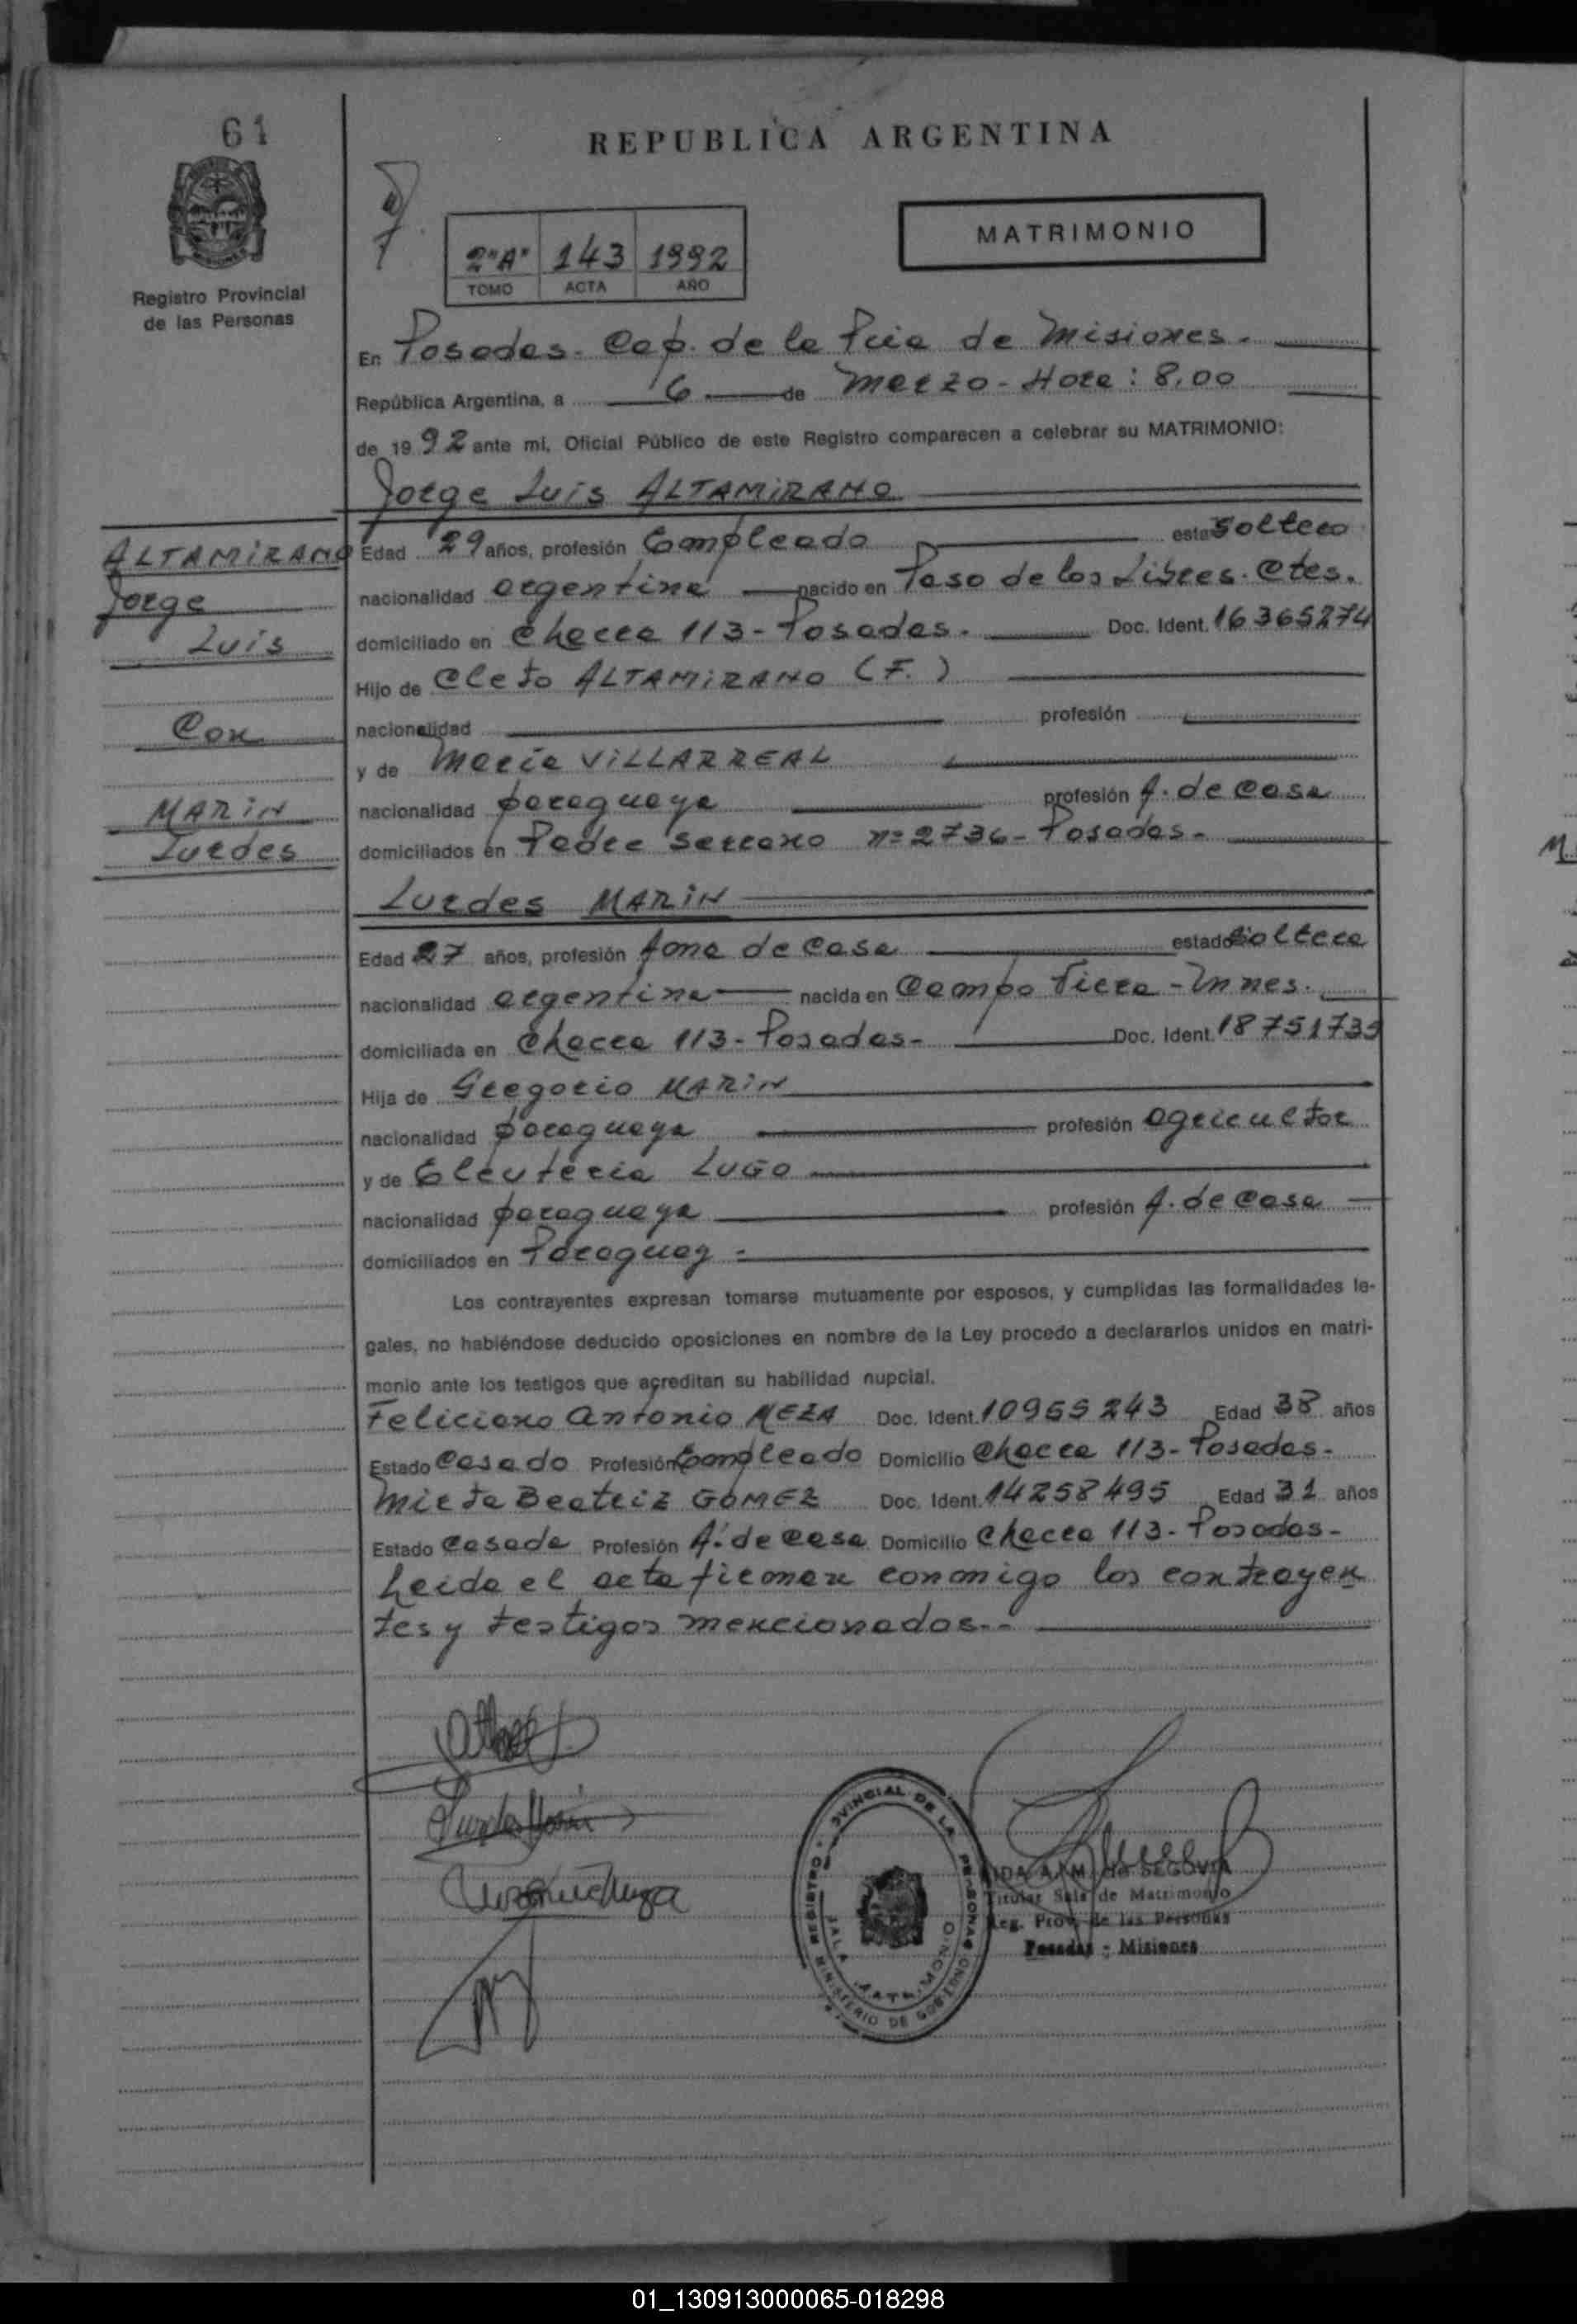 61
REPUBLICA ARGENTINA
MATRIMONIO
2"A" 143 1992
TOMO ACTA AÑO
Registro Provincial
de las Personas
En Posadas. Cap. de la Pcia de Misiones.
República Argentina, a 6 de Marzo - Hora: 8,00
de 1992 ante mi, Oficial Público de este Registro comparecen a celebrar su MATRIMONIO:
Jorge Luis ALTAMIRANO
ALTAMIRANO
Jorge
Luis
Con
MARIN
Lurdes
Edad 29 años, profesión Empleado esta soltero
nacionalidad argentina nacido en Paso de los Libres. Ctes.
domiciliado en Chacra 113 - Posadas. Doc. Ident. 16365274
Hijo de Cleto ALTAMIRANO (F.)
nacionalidad profesión
y de María VILLARREAL
nacionalidad paraguaya profesión A. de Casa
domiciliados en Padre Serrano nº 2736 - Posadas.
Lurdes MARIN
Edad 27 años, profesión Ama de Casa estado soltera
nacionalidad argentina nacida en Campo Viera - Mnes.
domiciliada en Chacra 113 - Posadas - Doc. Ident. 18751735
Hija de Gregorio MARIN
nacionalidad paraguaya profesión agricultor
y de Eleuteria LUGO
nacionalidad paraguaya profesión A. de Casa
domiciliados en Paraguay -
Los contrayentes expresan tomarse mutuamente por esposos, y cumplidas las formalidades le-
gales, no habiéndose deducido oposiciones en nombre de la Ley procedo a declararlos unidos en matri-
monio ante los testigos que acreditan su habilidad nupcial.
Feliciano Antonio MEZA Doc. Ident. 10965243 Edad 38 años
Estado Casado Profesión Empleado Domicilio Chacra 113 - Posadas -
Mirta Beatriz GOMEZ Doc. Ident. 14258495 Edad 31 años
Estado Casada Profesión A. de Casa Domicilio Chacra 113 - Posadas -
Leida el acta firman conmigo los contrayen
tes y testigos mencionados. -
Lurdes Marin
REGISTRO PROVINCIAL DE LAS PERSONAS
SALA MATRIMONIO
MINISTERIO DE GOBIERNO
de SEGOVIA
Titular Sala de Matrimonio
Reg. Prov. de las Personas
Posadas - Misiones
01_130913000065-018298